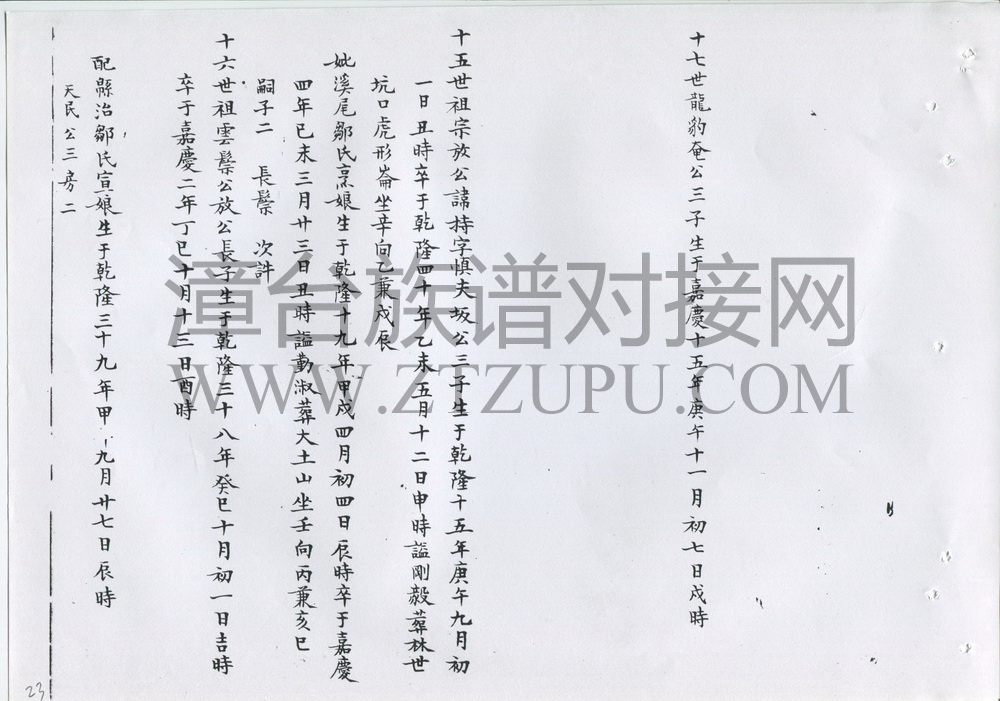 十七世龍豹奄公三子生于嘉慶十五年庚午十一月初七日戌時
十五世祖宗放公諱持字慎夫坂公三子生于乾隆十五年庚午九月初
一日丑時卒于乾隆四十年乙未五月十二日申時謚剛毅葬林世
坑口虎形崙坐辛向乙兼戌辰
妣溪尾鄒氏烹娘生于乾隆十九年甲戌四月初四日辰時卒于嘉慶
四年己未三月廿三日丑時謚勤淑葬大土山坐壬向丙兼亥巳
嗣子二 長鬃 次許
十六世祖雲鬃公放公長子生于乾隆三十八年癸巳十月初一日吉時
卒于嘉慶二年丁巳十月十三日酉時
配縣治鄒氏宣娘生于乾隆三十九年甲九月廿七日辰時
天民公三房二
23
漳台族谱对接网
WWW.ZTZUPU.COM